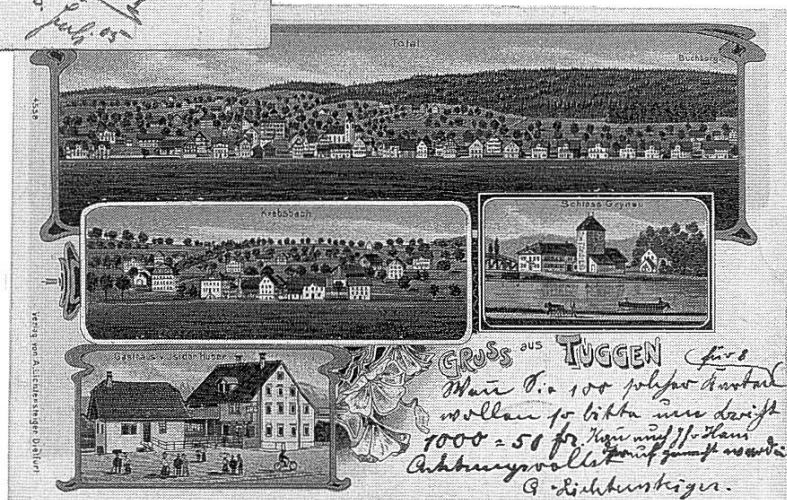 05
Total
Buchberg
4558
Krebsbach
Schloss Grynau
Verlag von A. Lichtensteiger, Dietfurt
Gasthaus v. Isidor Huber
GRUSS aus TUGGEN
für 8
Wenn Sie 100 solcher Karten
wollen so bitte um Bericht
1000 = 50 fr. Kann auch Ihr Haus
Achtungsvollst drauf gemacht werden
A. Lichtensteiger.